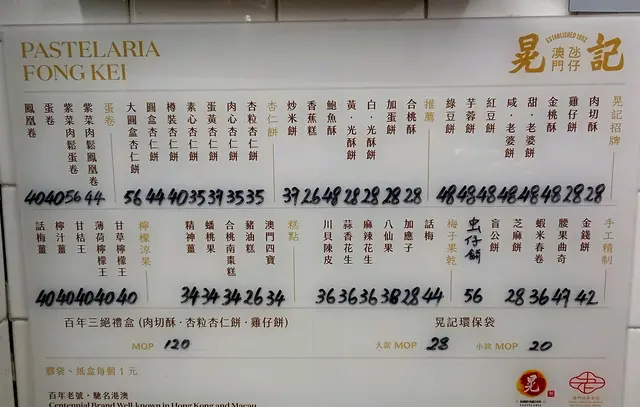 PASTELARIA
FONG KEI
ESTABLISHED 1903
晃記
澳門
氹仔
晃記招牌
肉切酥 28
雞仔餅 28
金桃酥 48
甜·老婆餅 48
咸·老婆餅 48
紅豆餅 48
芋蓉餅 48
綠豆餅 48
推薦
合桃酥 28
加蛋餅 28
白·光酥餅 28
黃·光酥餅 28
鮑魚酥 48
香蕉糕 26
炒米餅 39
杏仁餅
杏粒杏仁餅 35
肉心杏仁餅 35
蛋黃杏仁餅 39
素心杏仁餅 35
樽裝杏仁餅 40
圓盒杏仁餅 44
大圓盒杏仁餅 56
蛋卷
紫菜肉鬆鳳凰卷 44
紫菜肉鬆蛋卷 56
蛋卷 40
鳳凰卷 40
手工精制
金錢餅 42
腰果曲奇 47
蝦米春卷 36
芝麻餅 28
盲公餅
虫仔餅 56
梅子果乾
話梅 44
加應子 28
八仙果 38
麻辣花生 36
蒜香花生 36
川貝陳皮 36
糕點
澳門四寶 34
豬油糕 26
合桃南棗糕 34
蟠桃果 34
精神薑 34
檸檬涼果
甘草檸檬王 40
薄荷檸檬王 40
甘桔王 40
檸汁薑 40
話梅薑 40
百年三絕禮盒 (肉切酥·杏粒杏仁餅·雞仔餅)
MOP 120
晃記環保袋
大款 MOP 28 小款 MOP 20
膠袋、紙盒每個 1 元
百年老號·馳名港澳
Centennial Brand Well-known in Hong Kong and Macau